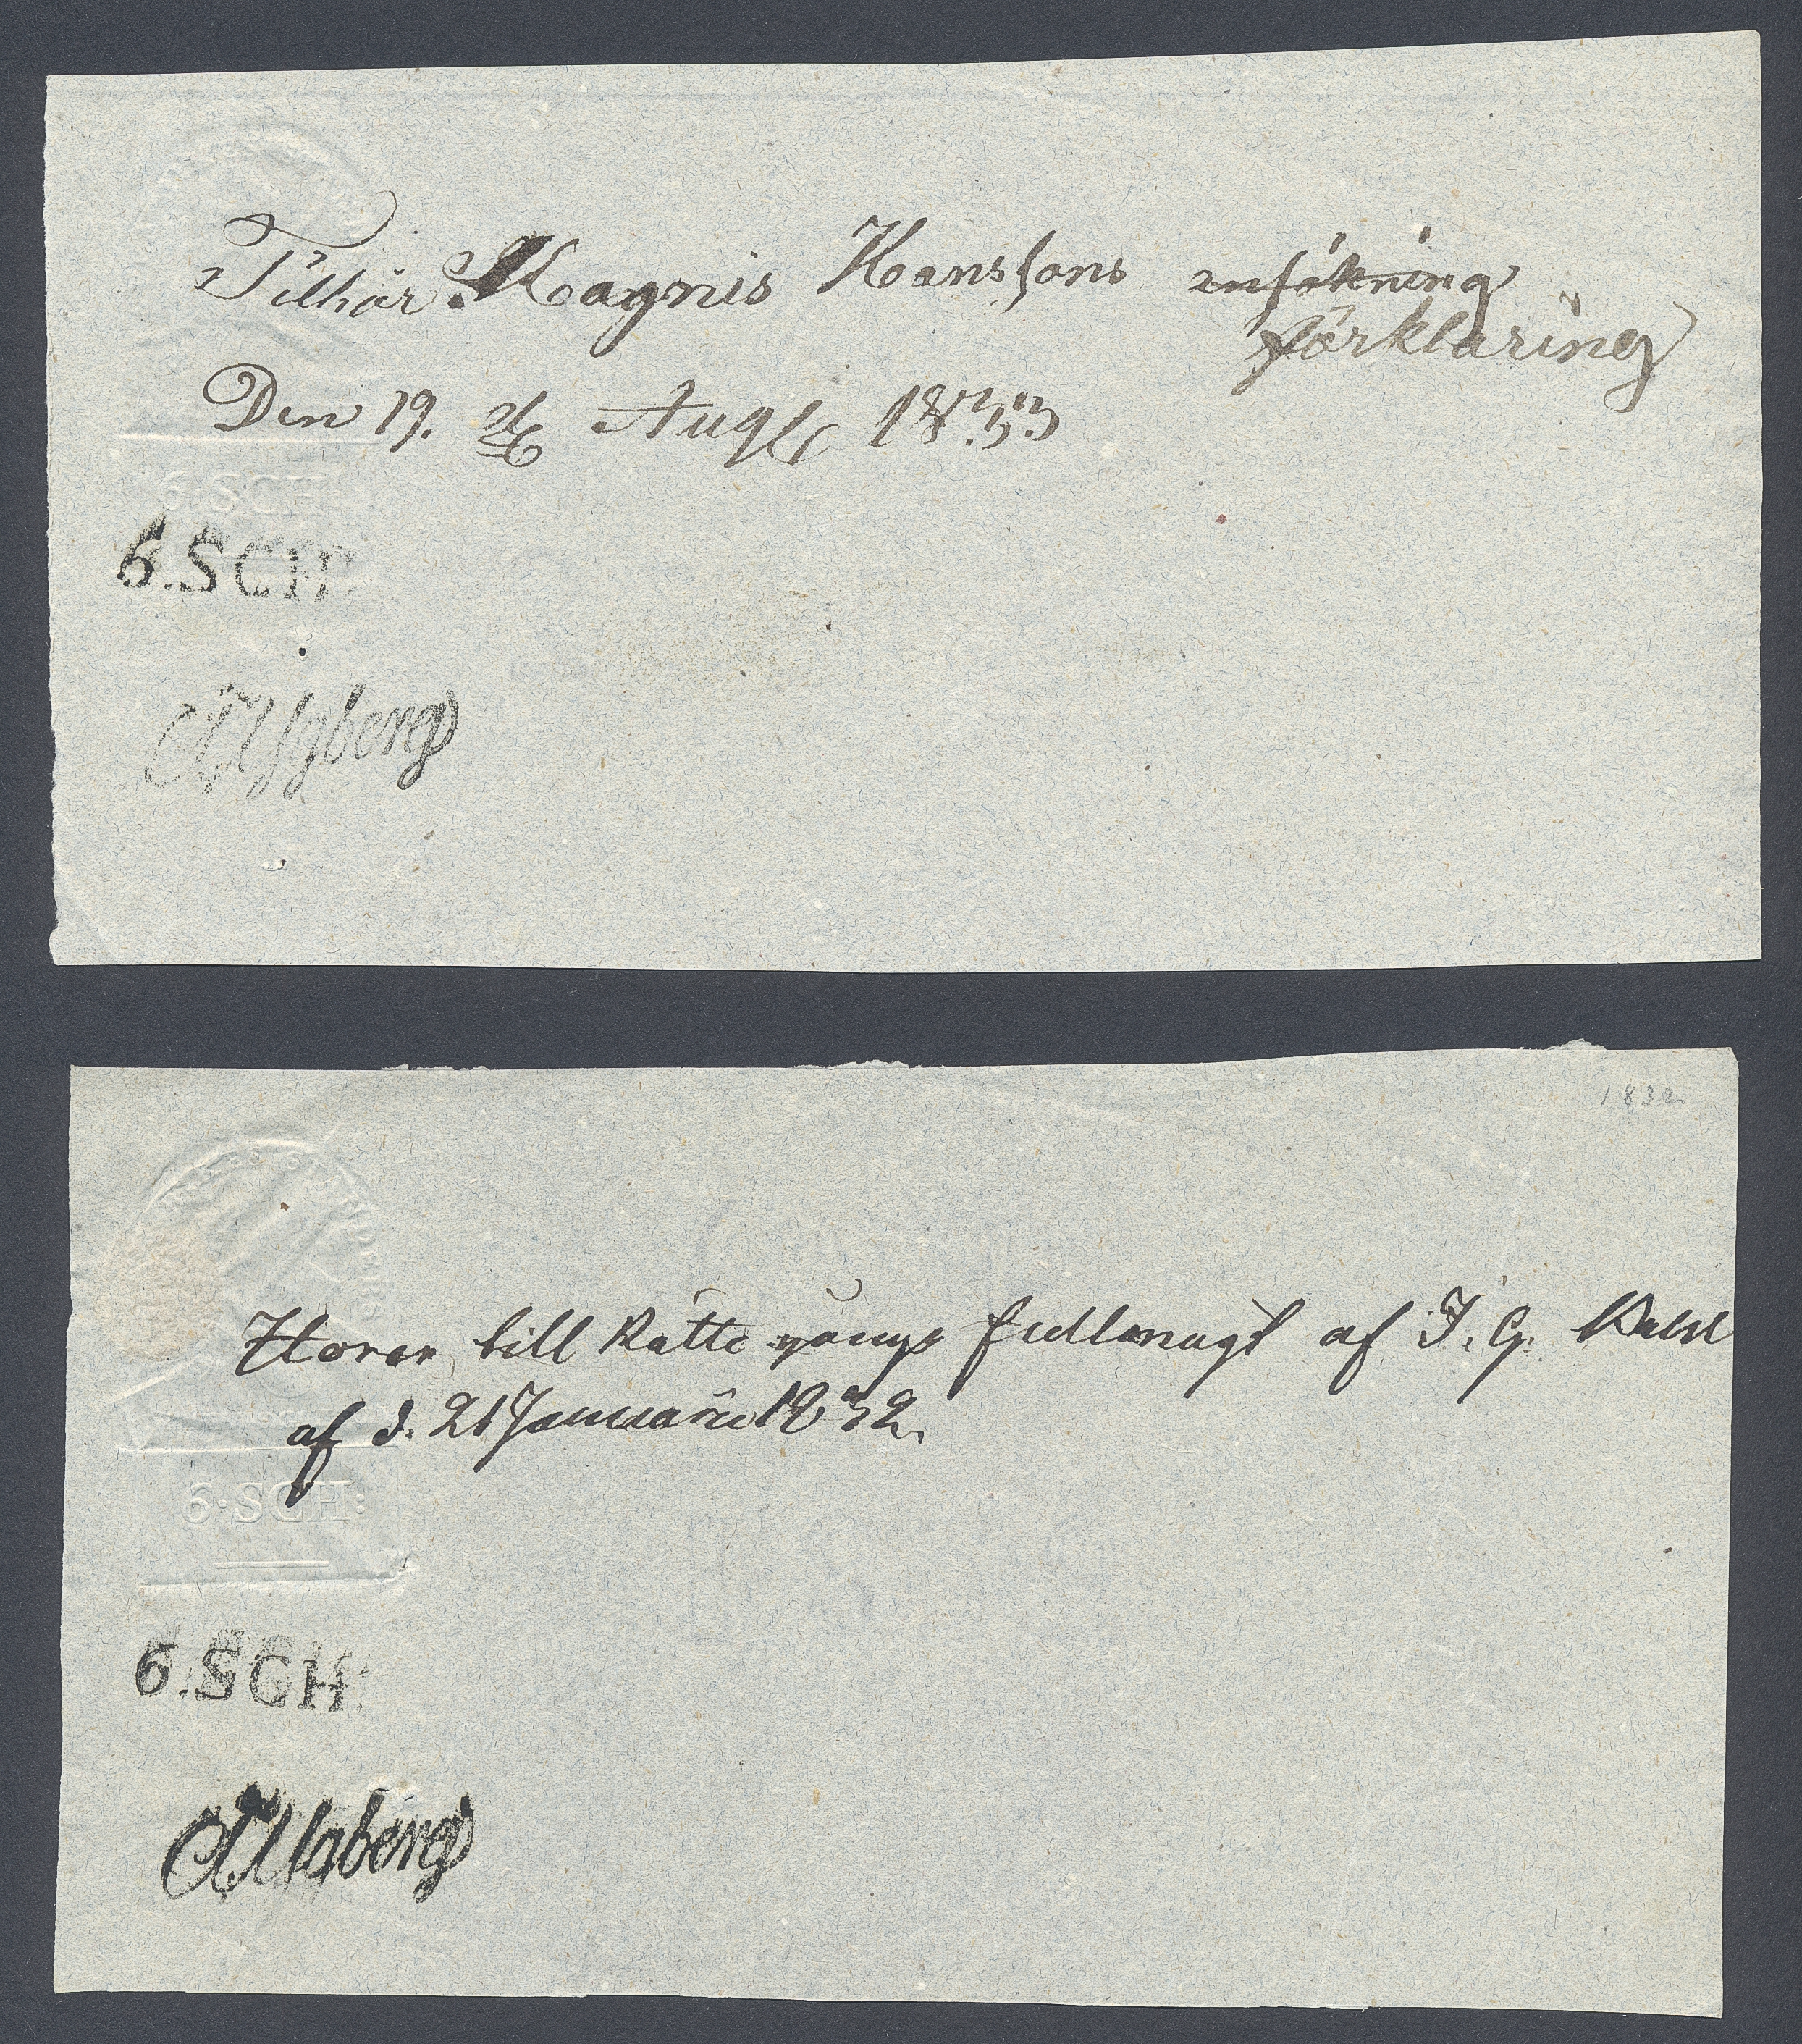 6·SCH
Tilhör Magnis Hanssons ansökning
förklaring
Den 19. Aug 1833
6.SCH:
1832
Hörer till Rätte gångs fullmagt af J. G.
af d. 21 Januari 1832.
6·SCH:
6.SCH: